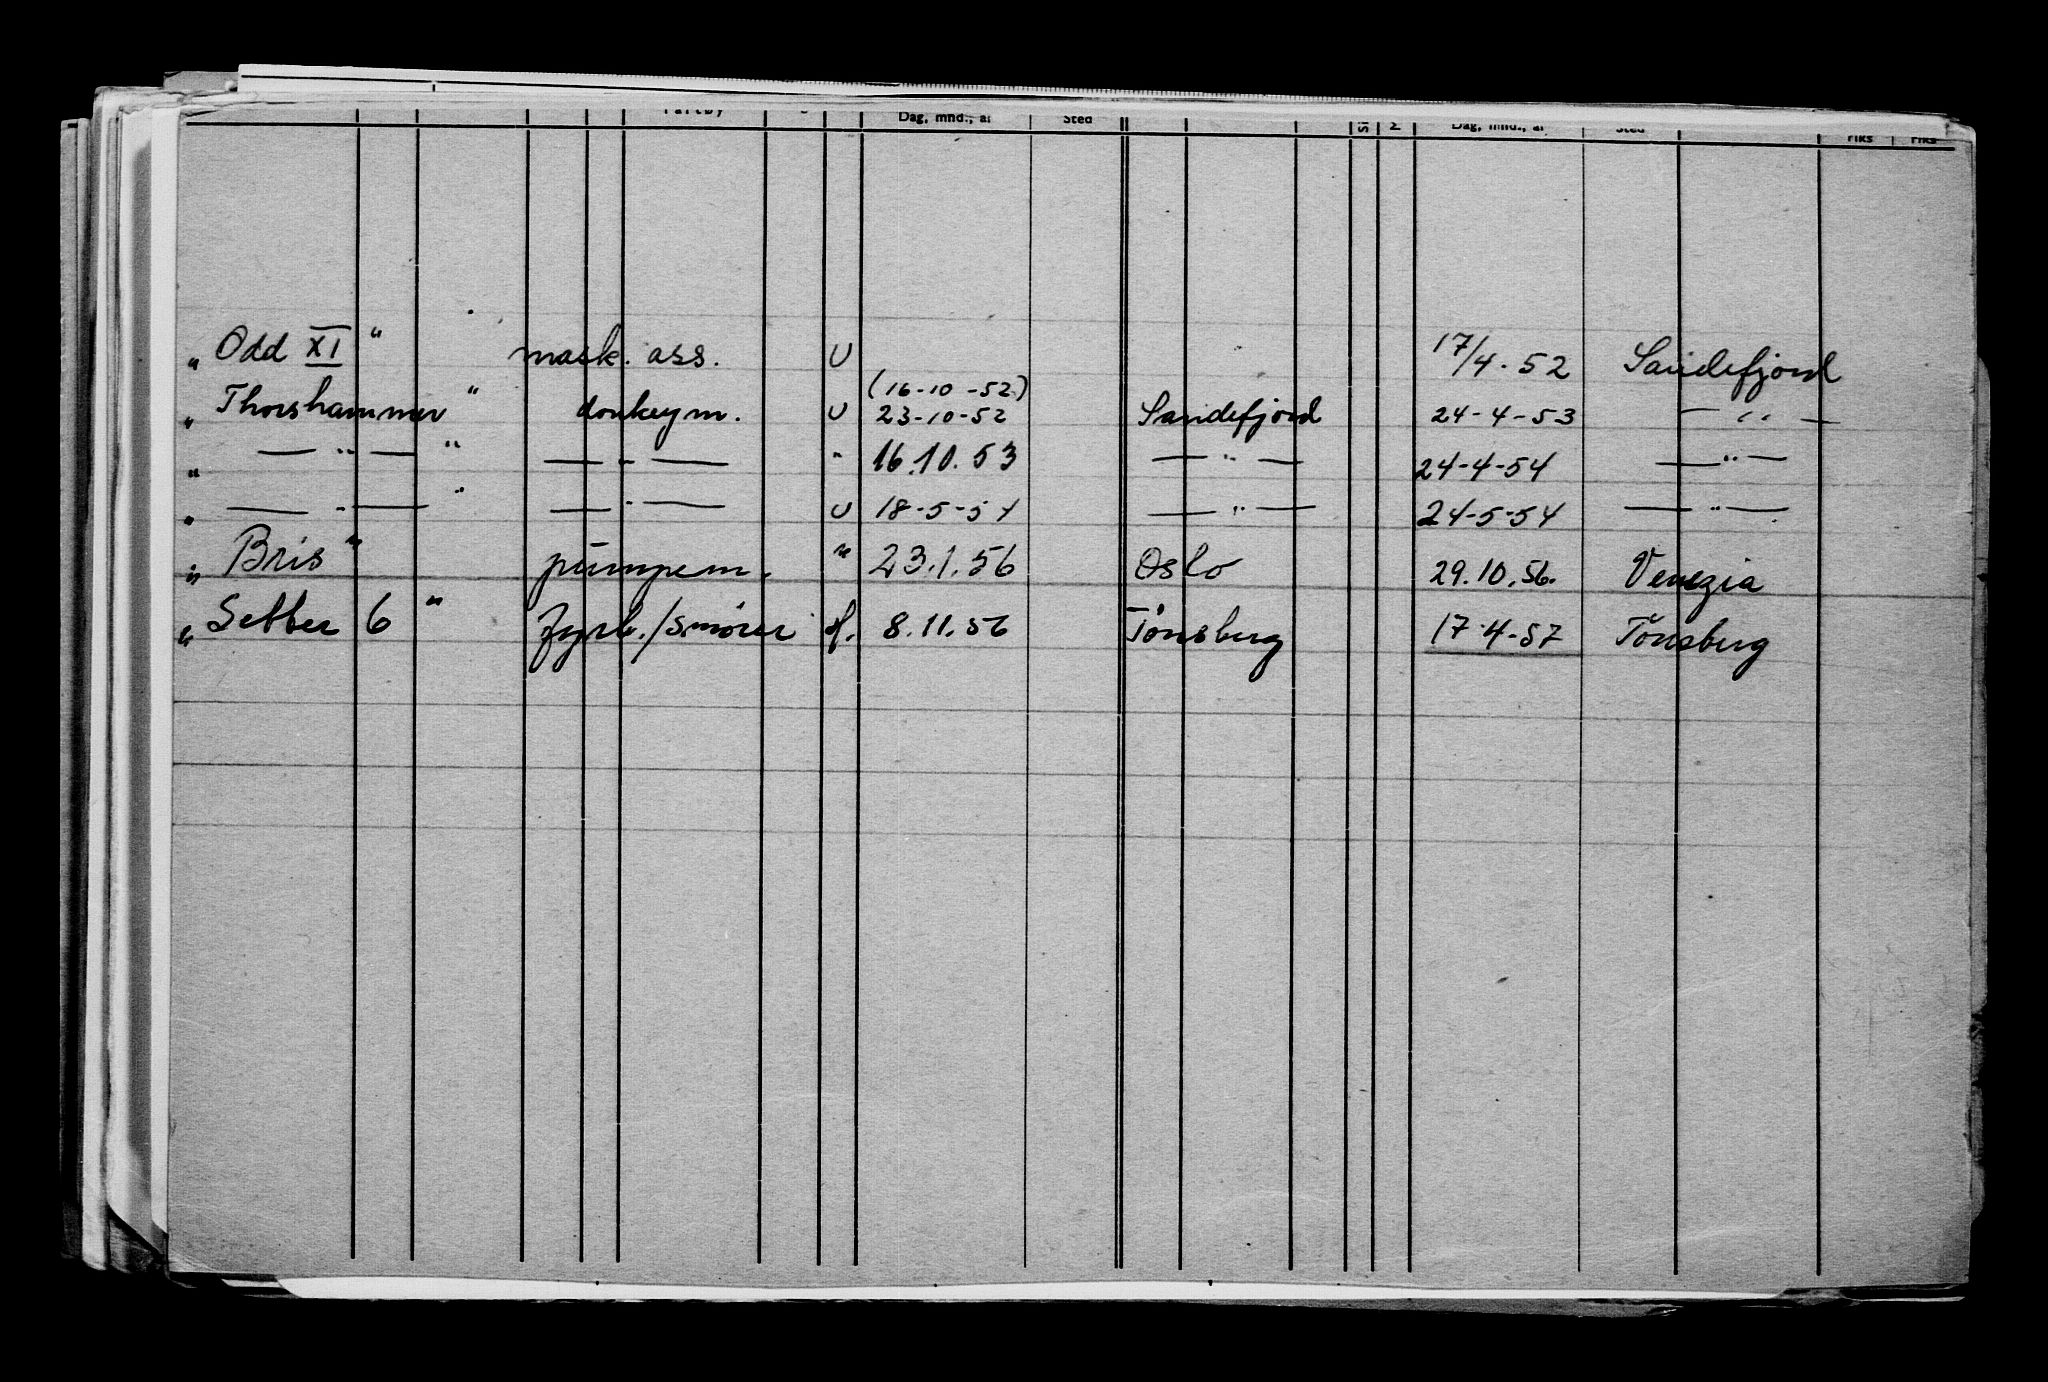 Dag, mnd., år Sted Dag, mnd., år Sted Fiks Fiks
„ Odd XI " mask. ass. U 17/4.52 Sandefjord
(16-10-52)
„ Thorshammer " donkeym. U 23-10-52 Sandefjord 24-4-53 — " —
„ — " — " — " — " 16.10.53 — " — 24-4-54 — " —
„ — " — " — " — U 18-5-54 — " — 24-5-54 — " —
„ Bris " pumpem. " 23.1.56 Oslo 29.10.56. Venezia
„ Setter 6 " fyrb./smører H. 8.11.56 Tønsberg 17.4-57 Tønsberg